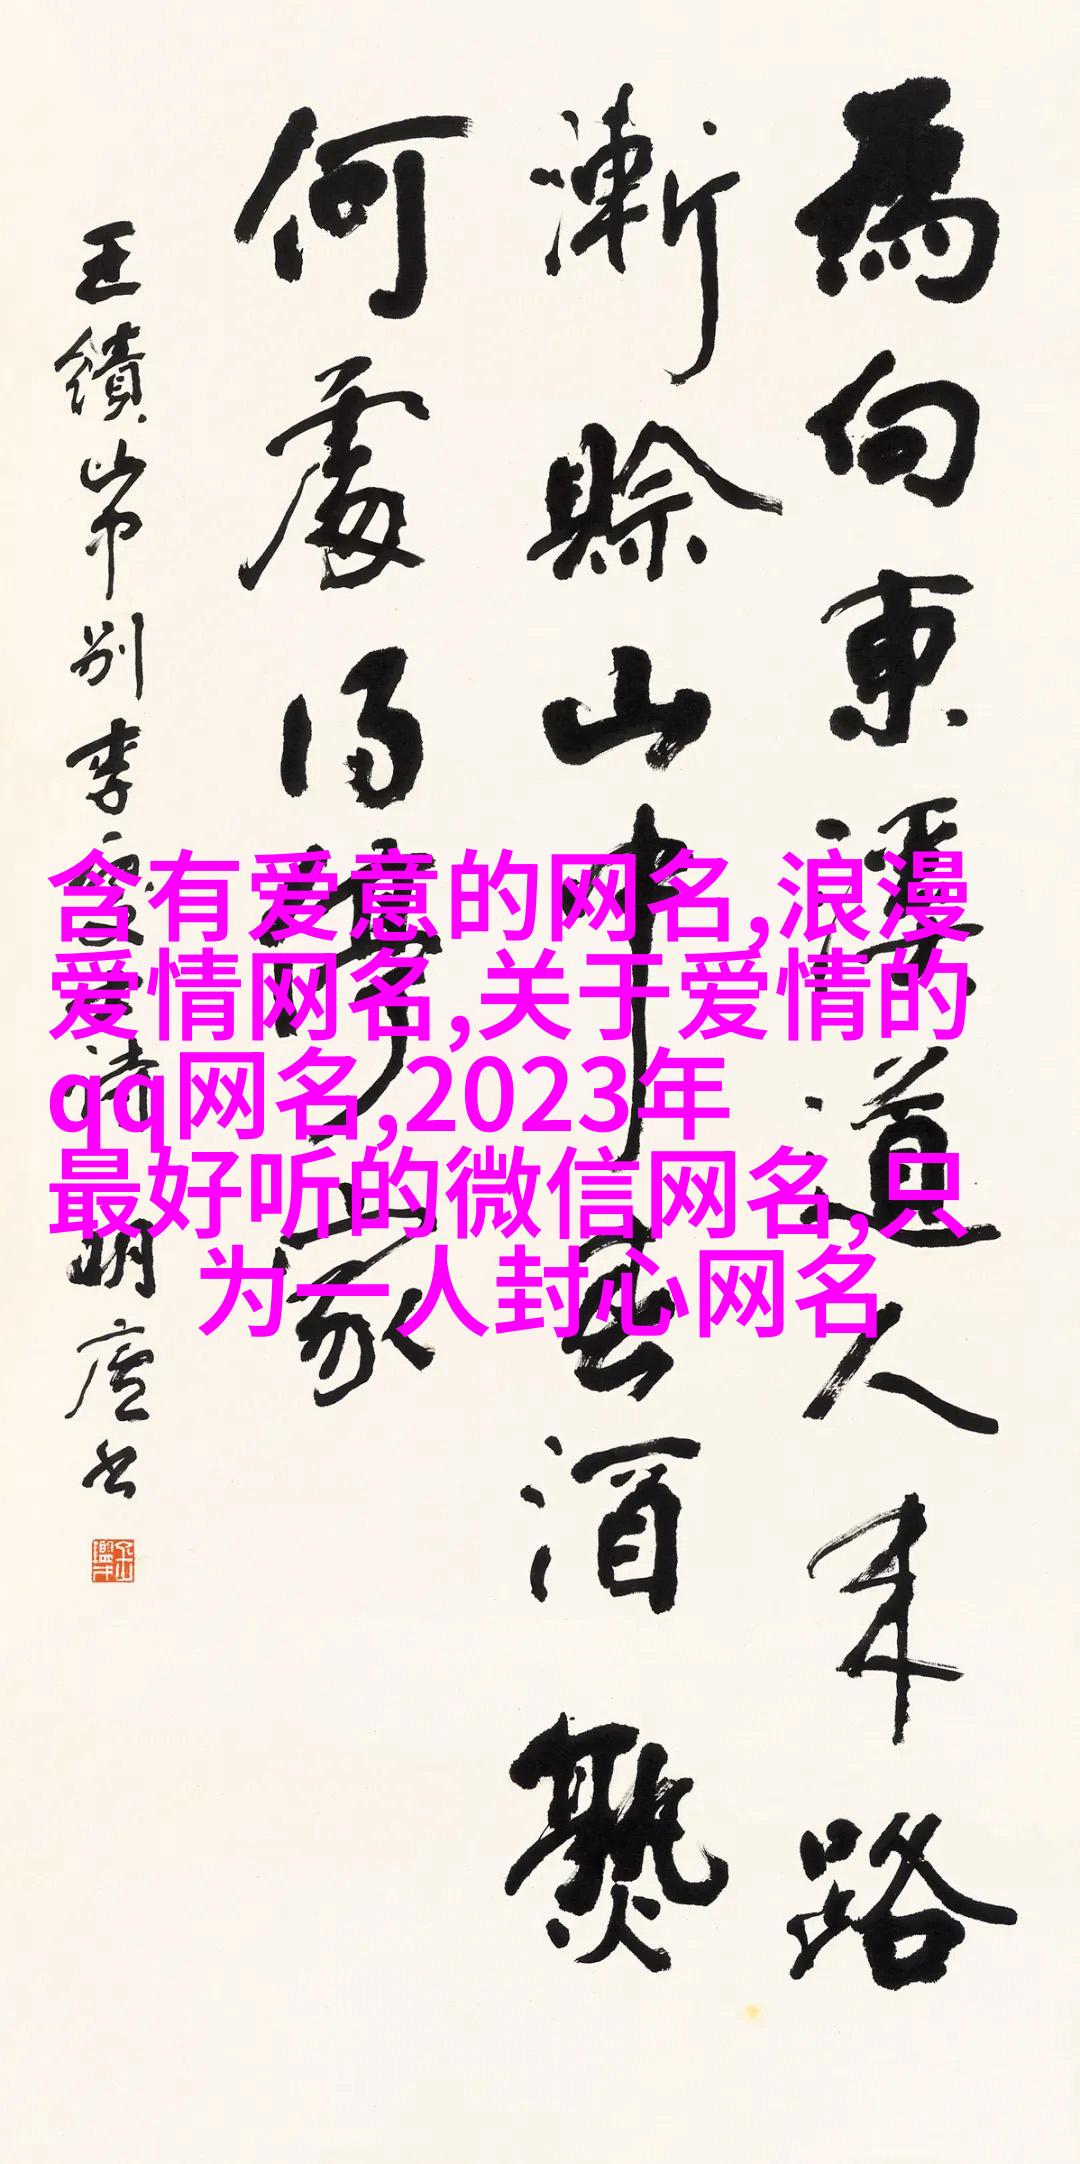 為向東溪道人来路
漸賒山中春酒熟
何處得停家
王績山中别李處士詩 明廬书
含有爱意的网名,浪漫
爱情网名,关于爱情的
qq网名,2023年
最好听的微信网名,只
为一人封心网名